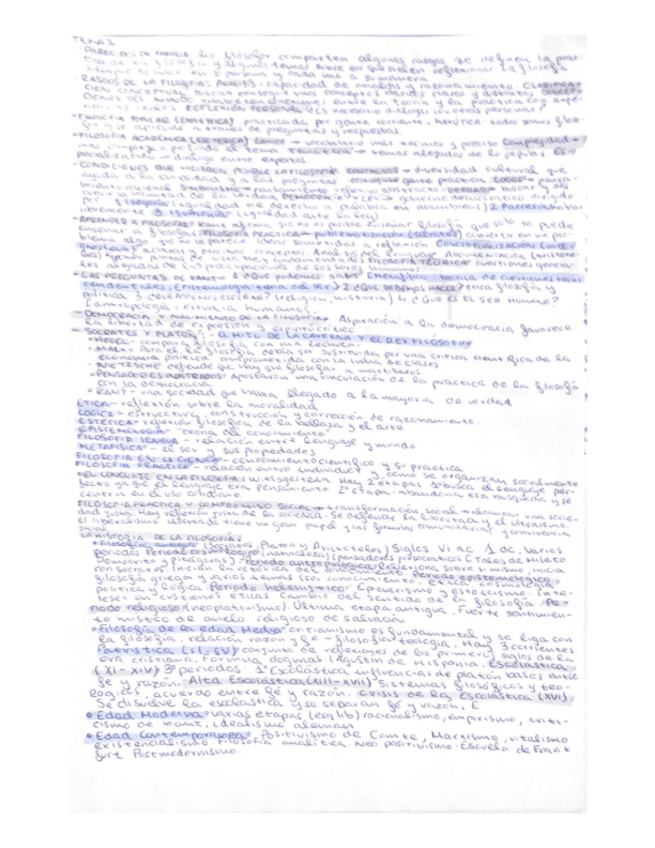 TEMA 1
los filósofos comparten algunos rasgos que definen la prác-
tica de la filosofía y algunos temas sobre
siempre en 1ª persona y cada uno a su manera
-RASGOS DE LA FILOSOFIA: ANALISIS → capacidad de analisis y razonamiento CLARIFICA-
CION CONCEPTUAL buscar conseguir unos conceptos claros y distintos
entre la teoría y la práctica
REFLEXION PERSONAL es necesario dialogo con otras personas
-FILOSOFIA POPULAR (EXOTERICA) practicada por gente corriente. todos somos filoso-
fos y se aplica a traves de preguntas y respuestas.
-FILOSOFIA ACADEMICA (ESOTERICA) → vocabulario más tecnico y preciso Complejidad →
mas complejo el tema → temas alejados de lo popular Es-
pecialización → dialogo entre expertos
-CONDICIONES QUE HICIERON POSIBLE LA FILOSOFIA: → diversidad cultural que
ayuda a la curiosidad y a las preguntas
racional → pensamiento objetivo abstracto VERDAD → buscar y des-
cubrir la verdad DEMOCRACIA Y LEY → gobierno democratico dirigido
por 1 Isegoría (igualdad de derecho a palabra en asamblea) 2 Parresia hablar
libremente 3 Isonomía (igualdad ante la ley)
-APRENDER A FILOSOFAR Kant afirma que no es posible enseñar filosofia que solo se puede
enseñar a filosofar FILOSOFIA PRACTICA → problematizar (Socrates) convertir en pro-
blema algo que no lo parece Ideas sometidas a reflexión CONCEPTUALIZACION
aclarar y precisar conceptos. Analisis del lenguaje ARGUMENTACION (Aristóte-
les) puntos de vista FILOSOFIA TEORICA cuestiones genera-
les alejadas de las preocupaciones de los seres humanos
-LAS PREGUNTAS DE KANT - 1 ¿QUE podemos saber? teoria de cuestiones
2 ¿QUE DEBEMOS HACER? etica filosofia y
politica 3 ¿QUE PODEMOS ESPERAR? (religion, historia) 4 ¿QUE ES EL SER HUMANO?
(antropología humanos
-DEMOCRACIA Y NACIMIENTO DE LA FILOSOFIA - Aspiración a la democracia favorece
la libertad de expresion y espiritu critico
-SOCRATES Y PLATON: EL MITO DE LA CAVERNA Y EL REY FILOSOFO
•HEGEL - compara filosofia con una lechuza.
•MARX - Para el la filosofia debia ser sustituida por una critica cientifica de la
economia politica comprometida con la lucha de clases
•NIETZSCHE defiende que hay que filosofar a martillazos
•PENSADORES ILUSTRADOS apostaron una vinculacion de la practica de la filosofia
con la democracia.
•KANT - una sociedad que haya llegado a la mayoria de verdad
ETICA - reflexión sobre la moralidad
LOGICA - estructura, construcción y corrección de razonamiento.
ESTETICA - reflexión filosofica de la belleza y el arte
EPISTEMOLOGIA - teoria del conocimiento
FILOSOFIA LENGUA - relacion entre lenguaje y mundo
METAFISICA - el ser y sus propiedades
FILOSOFIA EN LA CIENCIA - conocimiento cientifico y su practica
FILOSOFIA PRACTICA - relación entre individuos y como se organizan socialmente
•EL LENGUAJE EN LA FILOSOFIA: Wittgenstein. Hay 2 etapas. 1ª busca el lenguaje per-
fecto ya que el lenguaje es pensamiento 2ª etapa - abandona esa busqueda y se
centra en el uso cotidiano
FILOSOFIA PRACTICA Y COMPROMISO SOCIAL → transformación social → alcanzar una socie-
dad justa. Hay reflexión Se defiende la libertad y el
el liberalismo tiene un gran papel y las y convivencia
social
LA HISTORIA DE LA FILOSOFIA:
•Filosofia antigua (Socrates, Platon y Aristoteles) Siglos VI ac 1 dc. Varios
periodos Periodo cosmologico (naturaleza) (pensadores presocraticos (Tales de Mileto
Democrito y pitagoras) Periodo antropologico Reflexiona sobre si mismo, inicia
con socrates. Inician la retorica del argumento. Periodo epistemologico
filosofia griega y varios temas (ser conocimiento, etica cosmologia,
politica y logica Periodo helenistico Epicureismo y estoicismo. Inte-
rese en cuestiones eticas Cambio del sentido de la filosofia Pe-
riodo religioso (neoplatonismo). Ultima etapa antigua. Fuerte sentimien-
to mistico de anelo religioso de salvación
•Filosofia de la edad Media cristianismo es fundamental y se liga con
la filosofia. relación razon y fe - filosofia y teologia. Hay 3 corrientes
Patristica (SI-SV) conjunto de reflexiones de los primeros siglos de la
era cristiana. Formula dogmas (Agustin de Hispania. Escolastica
(XI-XIV) 3 periodos 1ª Escolastica influencias de platón bases entre
fe y razón. Alta Escolastica (XIII-XVII) Sistemas filosóficos y teo-
logicos, acuerdo entre fe y razón. Crisis de la Escolastica (XIV).
Se disuelve la escolastica y se separan fé y razón, E
• Edad Moderna varias etapas (esglto) racionalismo, empirismo, criti-
cismo de Kant, idealismo aleman
• Edad Contemporanea. Positivismo de Comte, Marxismo, vitalismo
existencialismo Filosofia analitica. Neo positivismo. Escuela de Frank
furt Postmodernismo.